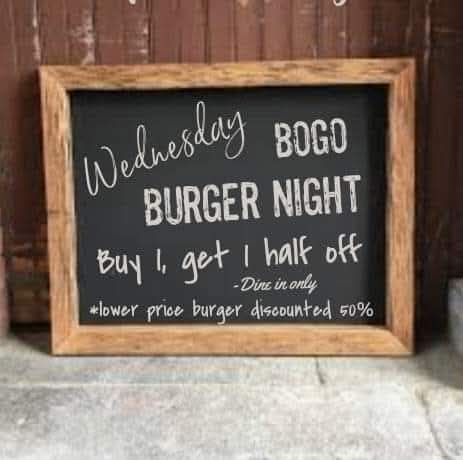 Wednesday BOGO
BURGER NIGHT
Buy 1, get 1 half off
-Dine in only
*lower price burger discounted 50%